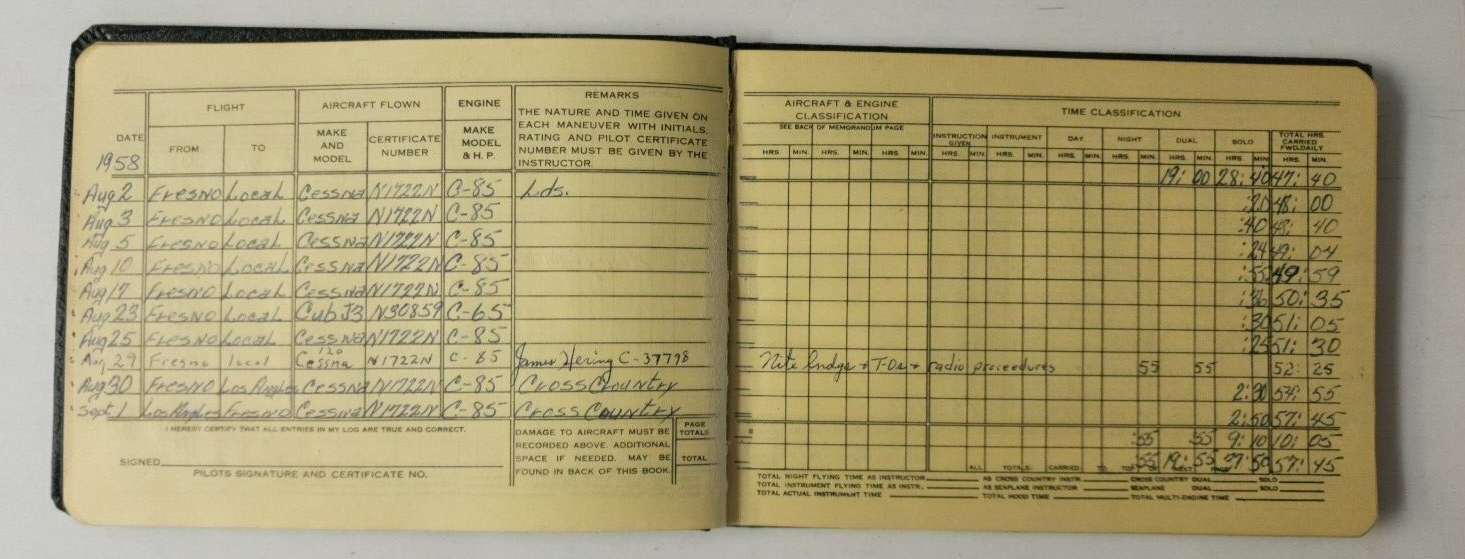 FLIGHT AIRCRAFT FLOWN ENGINE REMARKS
DATE FROM TO MAKE AND MODEL CERTIFICATE NUMBER MAKE MODEL & H.P. THE NATURE AND TIME GIVEN ON EACH MANEUVER WITH INITIALS, RATING AND PILOT CERTIFICATE NUMBER MUST BE GIVEN BY THE INSTRUCTOR.
1958
Aug 2 Fresno Local Cessna N1722N C-85 Lds.
Aug 3 Fresno Local Cessna N1722N C-85
Aug 5 Fresno Local Cessna N1722N C-85
Aug 10 Fresno Local Cessna N1722N C-85
Aug 17 Fresno Local Cessna N1722N C-85
Aug 23 Fresno Local Cub J3 N30859 C-65
Aug 25 Fresno Local Cessna N1722N C-85
Aug 29 Fresno local Cessna 120 N1722N C-85 James Hering C-37798
Aug 30 Fresno Los Angles Cessna N1722N C-85 Cross Country
Sept. 1 Los Angles Fresno Cessna N1722N C-85 Cross Country
I HEREBY CERTIFY THAT ALL ENTRIES IN MY LOG ARE TRUE AND CORRECT.
SIGNED
PILOTS SIGNATURE AND CERTIFICATE NO.
DAMAGE TO AIRCRAFT MUST BE
RECORDED ABOVE. ADDITIONAL
SPACE IF NEEDED. MAY BE
FOUND IN BACK OF THIS BOOK.
PAGE TOTALS
TOTAL
AIRCRAFT & ENGINE CLASSIFICATION TIME CLASSIFICATION
SEE BACK OF MEMORANDUM PAGE
INSTRUCTION GIVEN INSTRUMENT DAY NIGHT DUAL SOLO TOTAL HRS. CARRIED FWD. DAILY
HRS. MIN. HRS. MIN. HRS. MIN. HRS. MIN. HRS. MIN. HRS. MIN. HRS. MIN. HRS. MIN. HRS. MIN. HRS. MIN.
19: 00 28: 40 47: 40
:20 48: 00
:40 48: 40
:24 49: 04
:55 49: 59
:36 50: 35
:30 51: 05
:25 51: 30
Nite lndgs + T-Os + radio proceedures 55 55 52: 25
2:30 54: 55
2:50 57: 45
:55 :55 9: 10 10: 05
:55 19: 55 37: 50 57: 45
ALL TOTALS CARRIED TO TOP OF NEXT
TOTAL NIGHT FLYING TIME AS INSTRUCTOR AS CROSS COUNTRY INSTR. CROSS COUNTRY DUAL SOLO
TOTAL INSTRUMENT FLYING TIME AS INSTR. AS SEAPLANE INSTRUCTOR SEAPLANE DUAL SOLO
TOTAL ACTUAL INSTRUMENT TIME TOTAL HOOD TIME TOTAL MULTI-ENGINE TIME